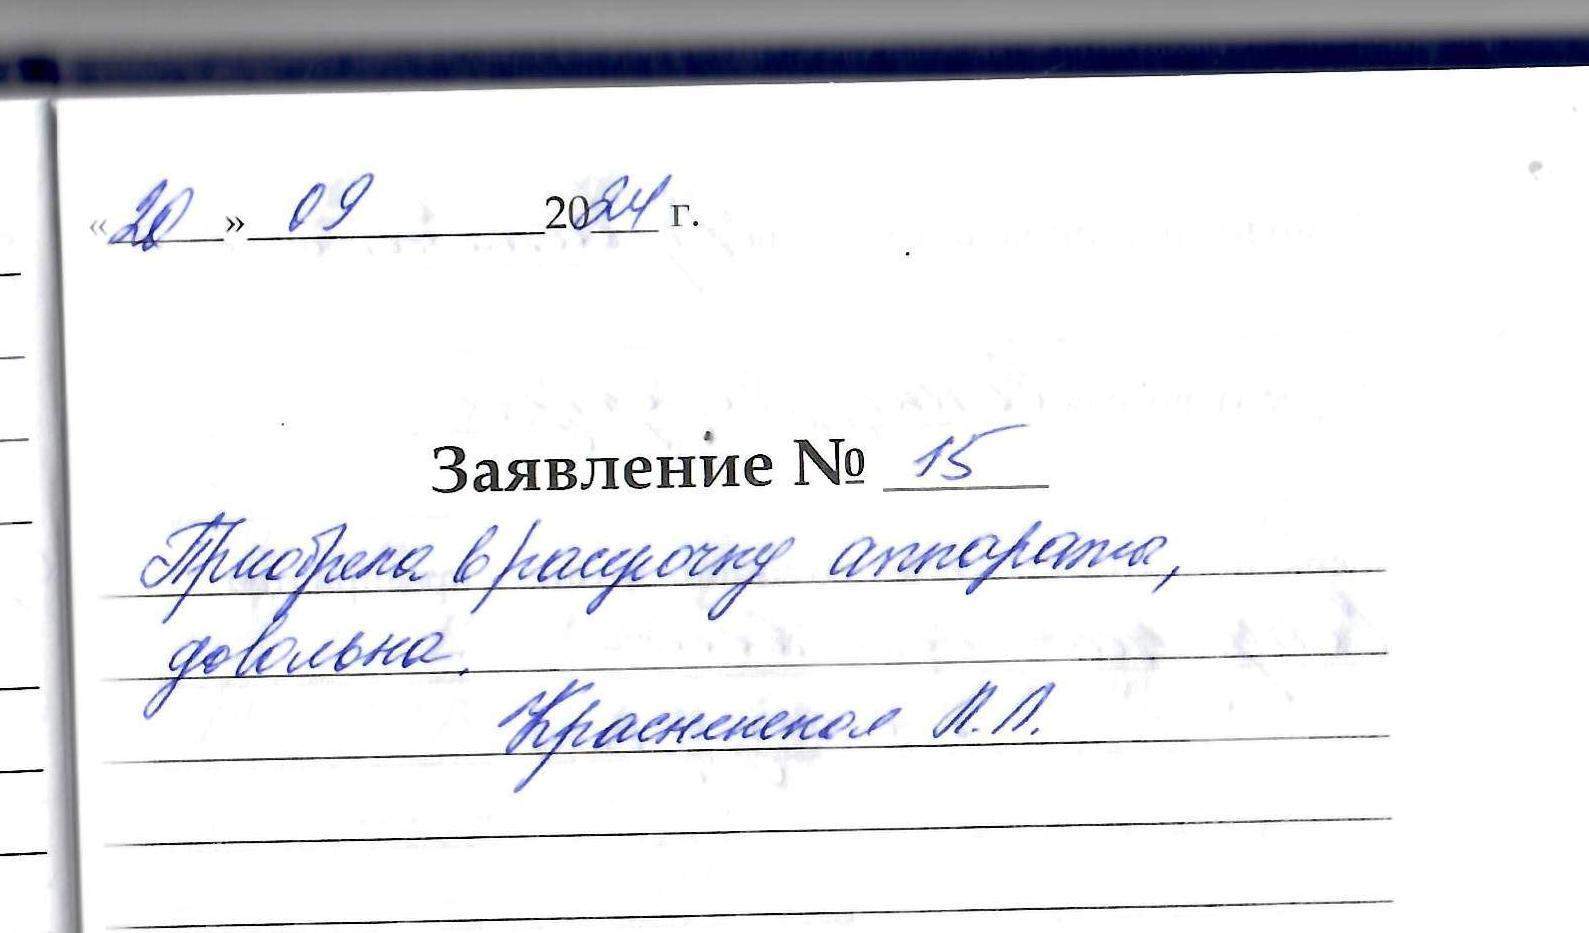 «20» 09 2024 г.
Заявление № 15
Приобрела в рассрочку аппараты,
довольна.
Л.Л.